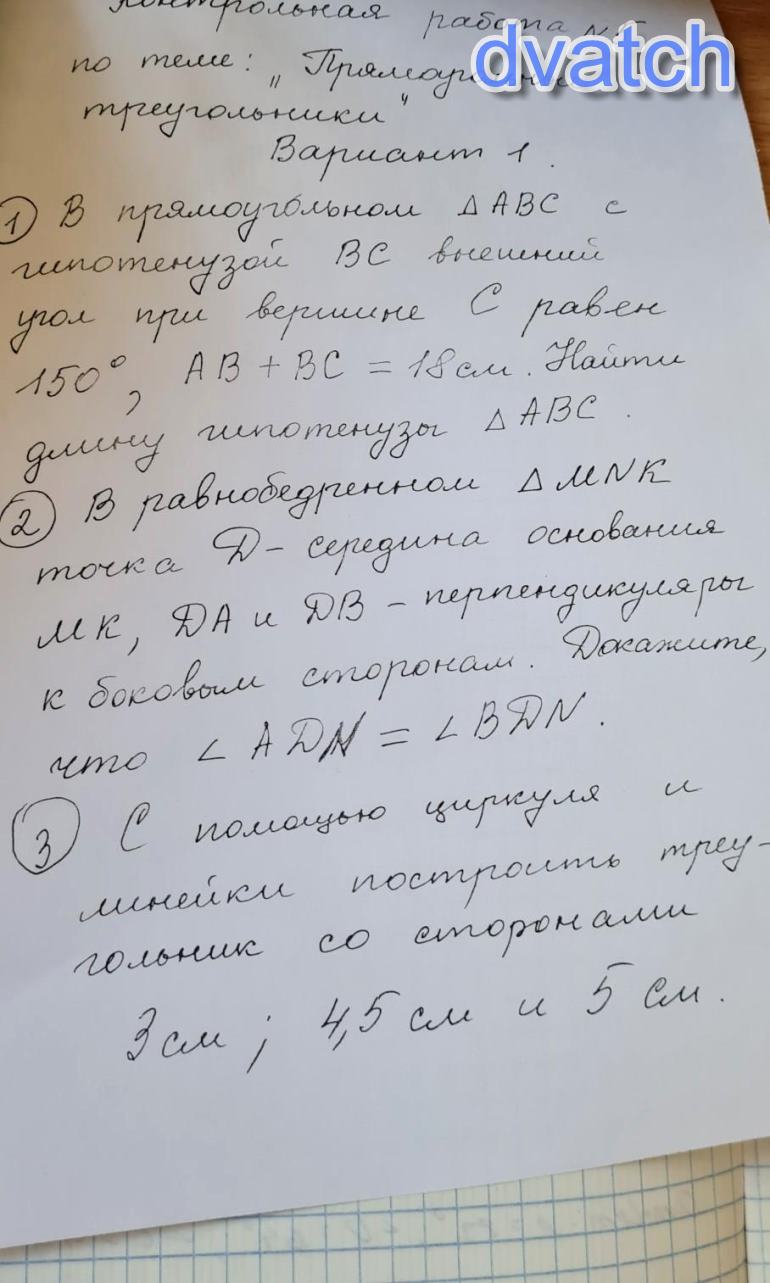 Контрольная работа №5
dvatch
по теме: „Прямоугольные
треугольники"
Вариант 1.
1 В прямоугольном △ABC с
гипотенузой BC внешний
угол при вершине C равен
150°, AB + BC = 18 см. Найти
длину гипотенузы △ABC.
2 В равнобедренном △MNK
точка D - середина основания
MK, DA и DB - перпендикуляры
к боковым сторонам. Докажите,
что ∠ADN = ∠BDN.
3 С помощью циркуля и
линейки построить треу-
гольник со сторонами
3 см; 4,5 см и 5 см.